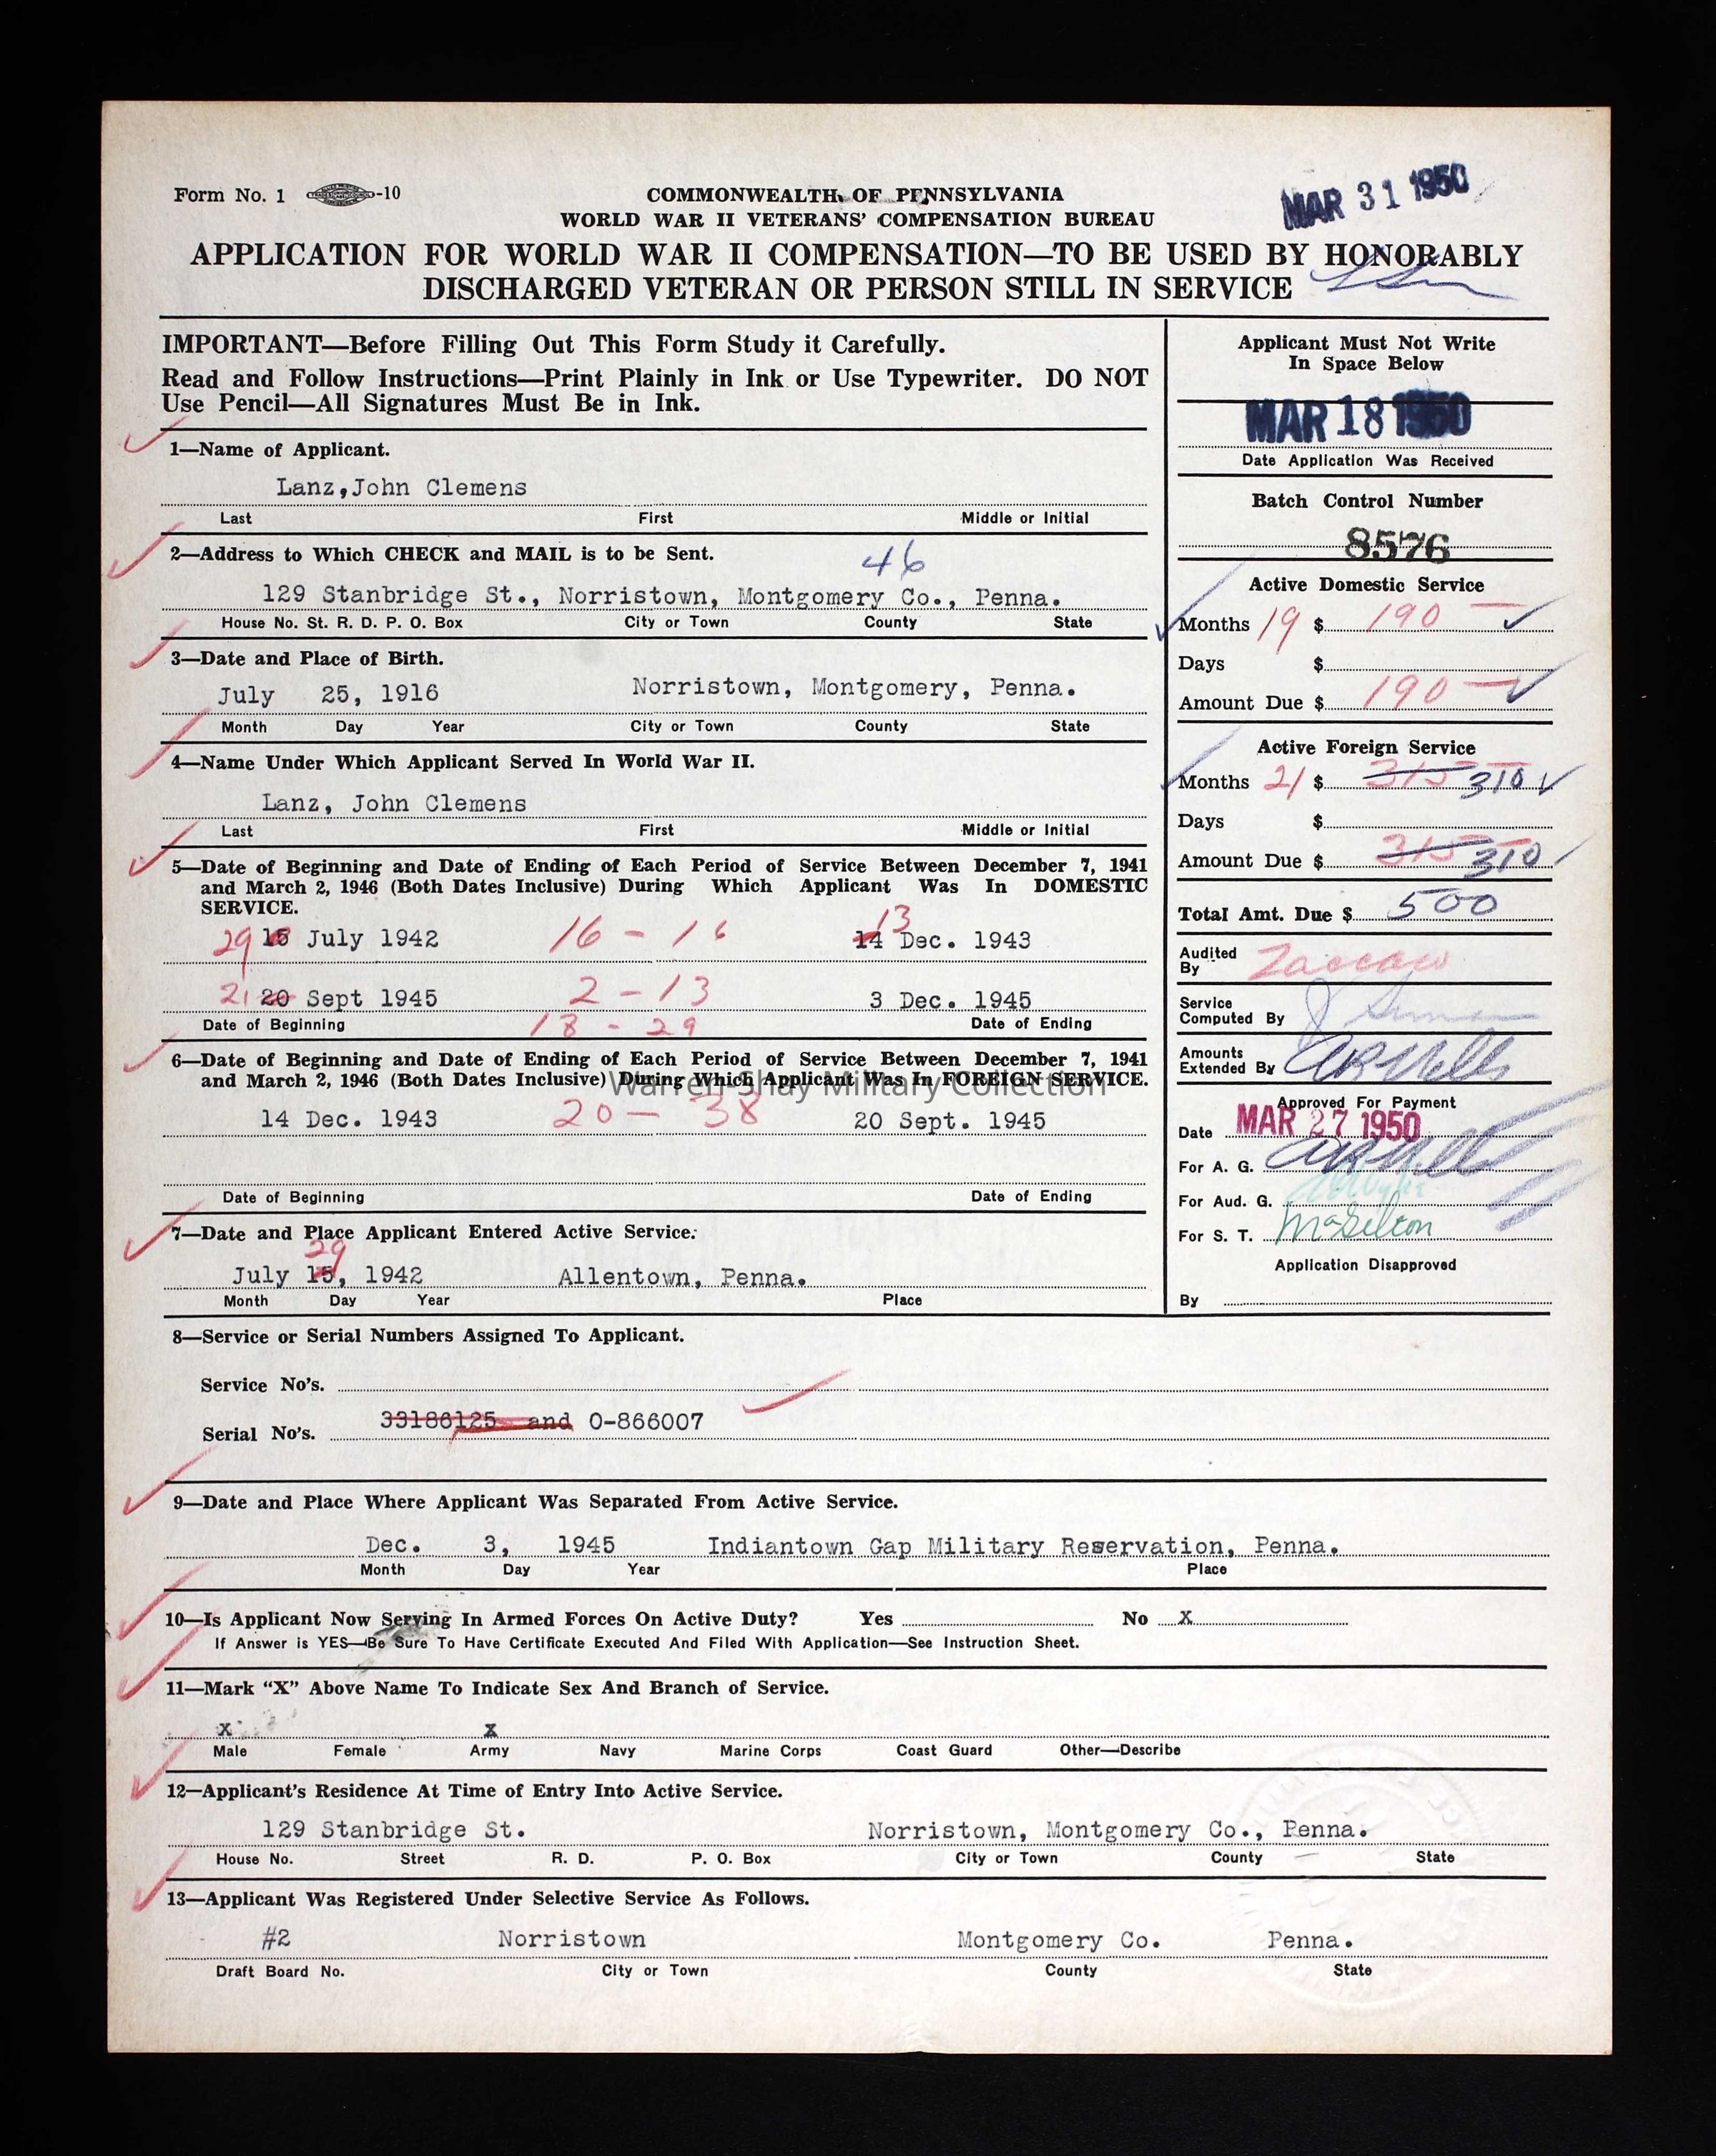 Form No. 1 -10
COMMONWEALTH OF PENNSYLVANIA
WORLD WAR II VETERANS' COMPENSATION BUREAU
MAR 31 1950
APPLICATION FOR WORLD WAR II COMPENSATION—TO BE USED BY HONORABLY
DISCHARGED VETERAN OR PERSON STILL IN SERVICE
IMPORTANT—Before Filling Out This Form Study it Carefully.
Read and Follow Instructions—Print Plainly in Ink or Use Typewriter. DO NOT
Use Pencil—All Signatures Must Be in Ink.
1—Name of Applicant.
Lanz,John Clemens
Last First Middle or Initial
2—Address to Which CHECK and MAIL is to be Sent.
46
129 Stanbridge St., Norristown, Montgomery Co., Penna.
House No. St. R. D. P. O. Box City or Town County State
3—Date and Place of Birth.
July 25, 1916 Norristown, Montgomery, Penna.
Month Day Year City or Town County State
4—Name Under Which Applicant Served In World War II.
Lanz, John Clemens
Last First Middle or Initial
5—Date of Beginning and Date of Ending of Each Period of Service Between December 7, 1941
and March 2, 1946 (Both Dates Inclusive) During Which Applicant Was In DOMESTIC
SERVICE.
13
29 15 July 1942 16 - 16 14 Dec. 1943
21 20 Sept 1945 2 - 13 3 Dec. 1945
Date of Beginning 18 - 29 Date of Ending
6—Date of Beginning and Date of Ending of Each Period of Service Between December 7, 1941
and March 2, 1946 (Both Dates Inclusive) During Which Applicant Was In FOREIGN SERVICE.
Warren-Shay Military Collection
14 Dec. 1943 20 - 38 20 Sept. 1945
Date of Beginning Date of Ending
7—Date and Place Applicant Entered Active Service:
29
July 15, 1942 Allentown, Penna.
Month Day Year Place
Applicant Must Not Write
In Space Below
MAR 18 1950
Date Application Was Received
Batch Control Number
8576
Active Domestic Service
Months 19 $ 190
Days $
Amount Due $ 190
Active Foreign Service
Months 21 $ 315 310
Days $
Amount Due $ 315 310
Total Amt. Due $ 500
Audited
By Zaccaw
Service
Computed By
Amounts
Extended By
Approved For Payment
Date MAR 27 1950
For A. G.
For Aud. G.
For S. T.
Application Disapproved
By
8—Service or Serial Numbers Assigned To Applicant.
Service No's.
Serial No's. 33186125 and O-866007
9—Date and Place Where Applicant Was Separated From Active Service.
Dec. 3, 1945 Indiantown Gap Military Reservation, Penna.
Month Day Year Place
10—Is Applicant Now Serving In Armed Forces On Active Duty? Yes No X
If Answer is YES—Be Sure To Have Certificate Executed And Filed With Application—See Instruction Sheet.
11—Mark “X” Above Name To Indicate Sex And Branch of Service.
X X
Male Female Army Navy Marine Corps Coast Guard Other—Describe
12—Applicant's Residence At Time of Entry Into Active Service.
129 Stanbridge St. Norristown, Montgomery Co., Penna.
House No. Street R. D. P. O. Box City or Town County State
13—Applicant Was Registered Under Selective Service As Follows.
#2 Norristown Montgomery Co. Penna.
Draft Board No. City or Town County State